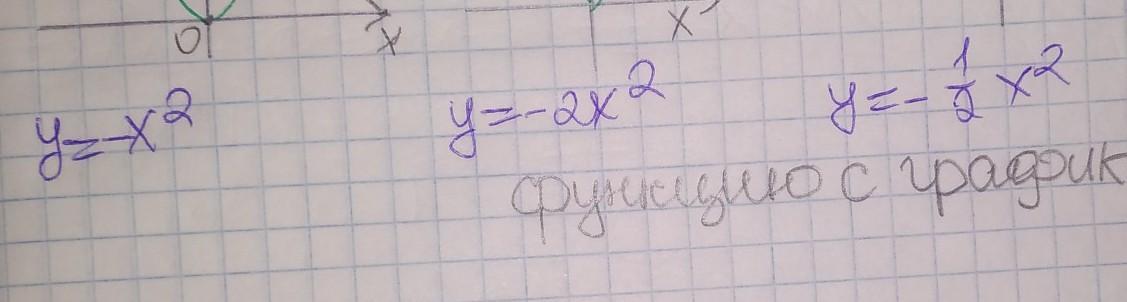 0 x x
y=-x² y=-2x² y=-1/2 x²
функцию с график